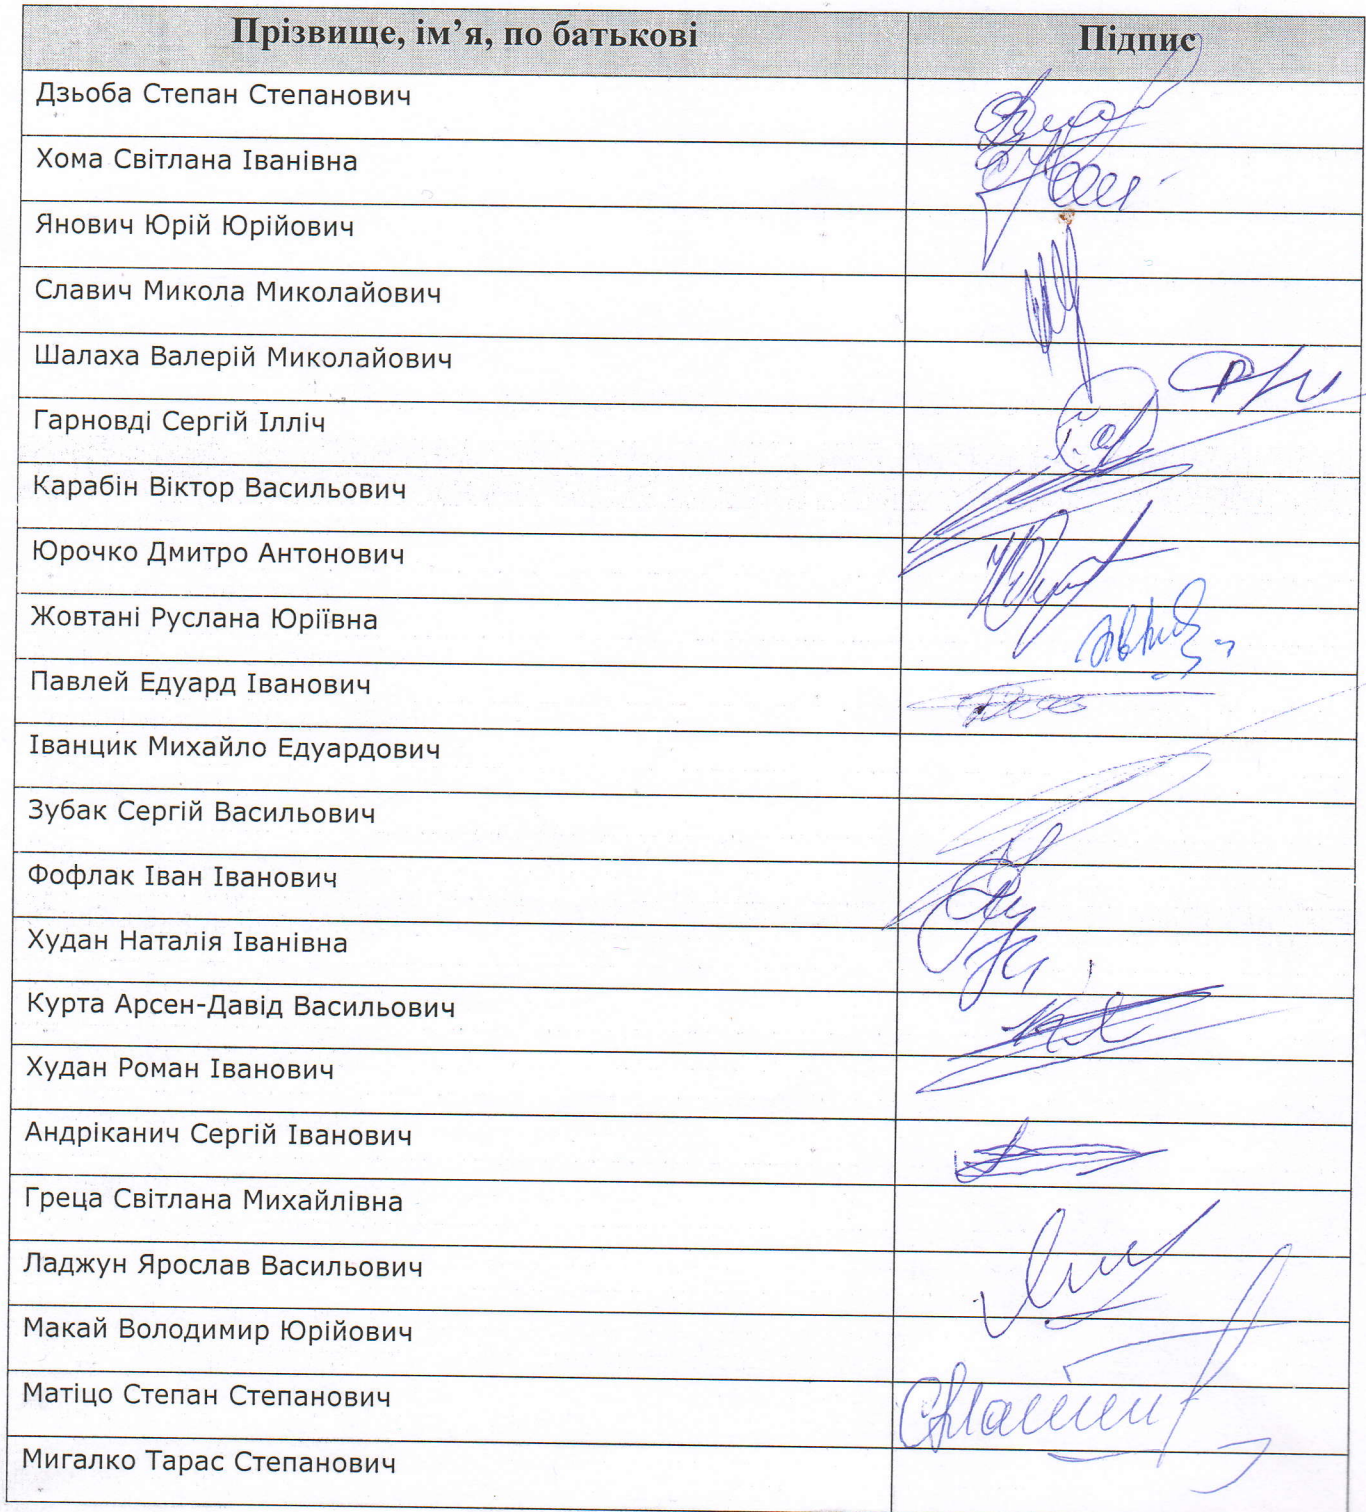 Прізвище, ім’я, по батькові Підпис
Дзьоба Степан Степанович
Хома Світлана Іванівна
Янович Юрій Юрійович
Славич Микола Миколайович
Шалаха Валерій Миколайович
Гарновді Сергій Ілліч
Карабін Віктор Васильович
Юрочко Дмитро Антонович
Жовтані Руслана Юріївна
Павлей Едуард Іванович
Іванцик Михайло Едуардович
Зубак Сергій Васильович
Фофлак Іван Іванович
Худан Наталія Іванівна
Курта Арсен-Давід Васильович
Худан Роман Іванович
Андріканич Сергій Іванович
Греца Світлана Михайлівна
Ладжун Ярослав Васильович
Макай Володимир Юрійович
Матіцо Степан Степанович
Мигалко Тарас Степанович